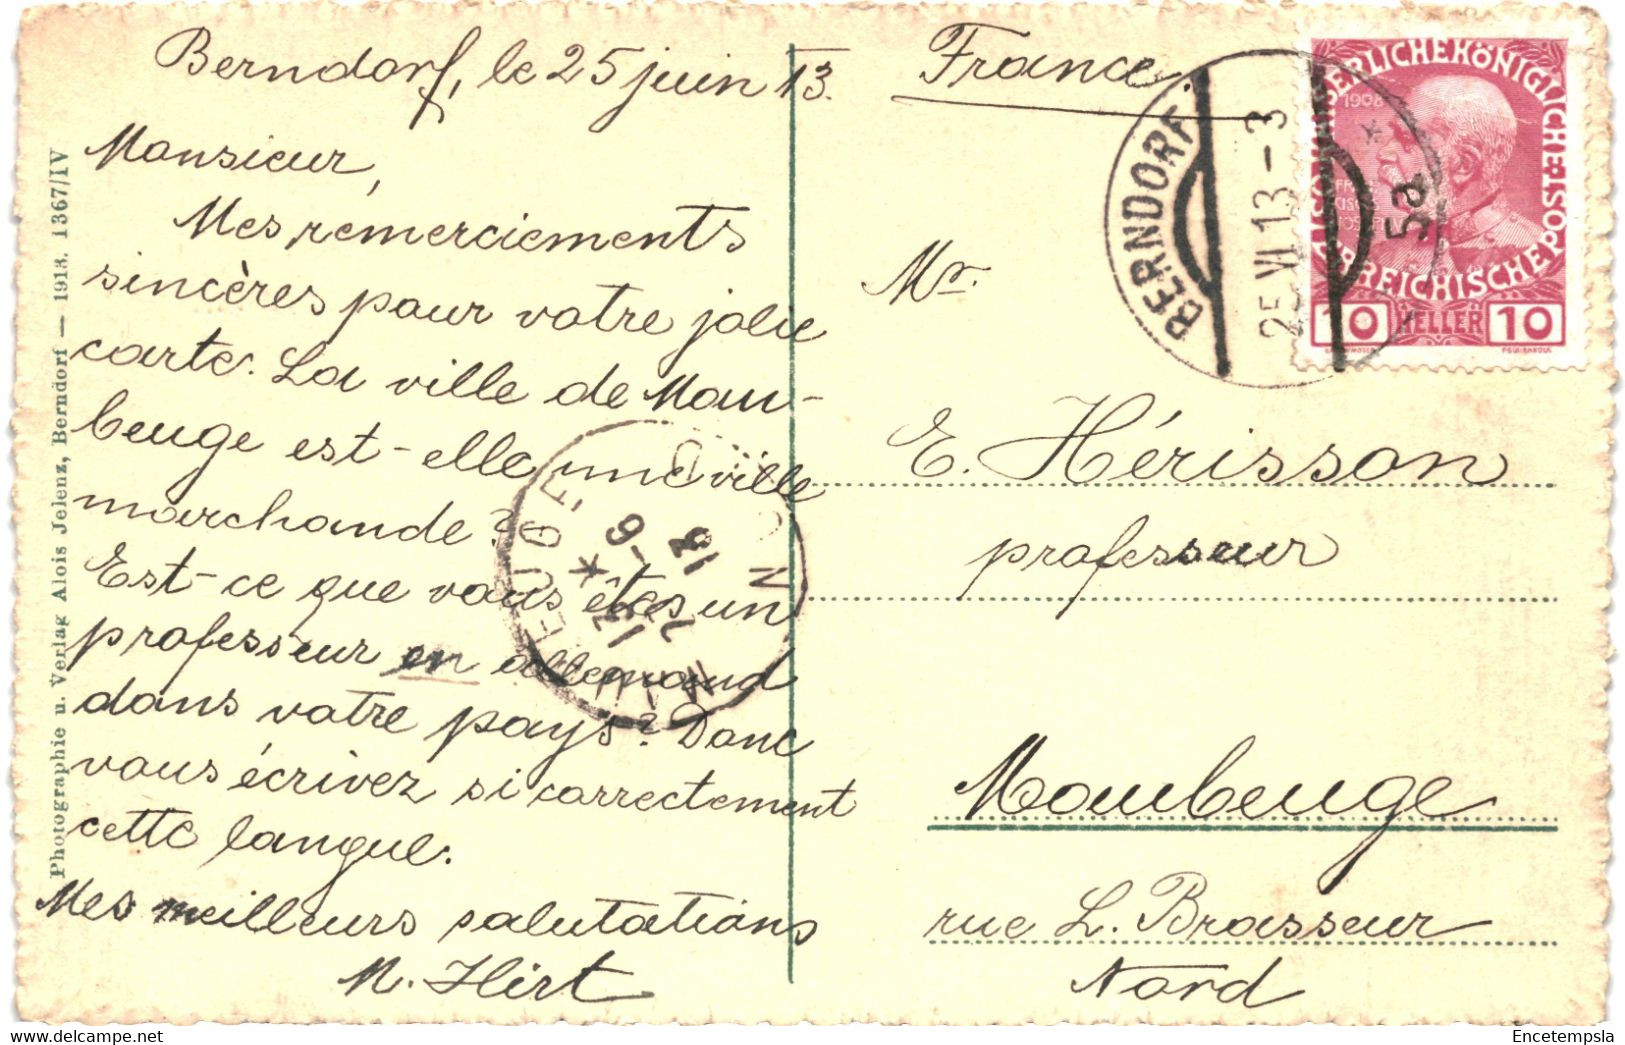 Berndorf, le 25 juin 13.
Monsieur,
Mes remerciements
sincères pour votre jolie
carte. La ville de Mau-
beuge est-elle une ville
marchande?
Est-ce que vous êtes un
professeur en allemand
dans votre pays? Donc
vous écrivez si correctement
cette langue.
Mes meilleurs salutations
M. Hirt
Photographie u. Verlag Alois Jelenz, Berndorf — 1913. 1367/IV
France
Mr.
E. Hérisson
professeur
Maubeuge
rue L. Brasseur
Nord
BERNDORF.
25 VI 13 - 3
5a
KAISERLICHEKÖNIGLICHE ÖSTERREICHISCHE POST
1908
10 HELLER 10
MAUBEUGE
NORD
© Delcampe.net - The World's largest marketplace for collectors
Encetempsla